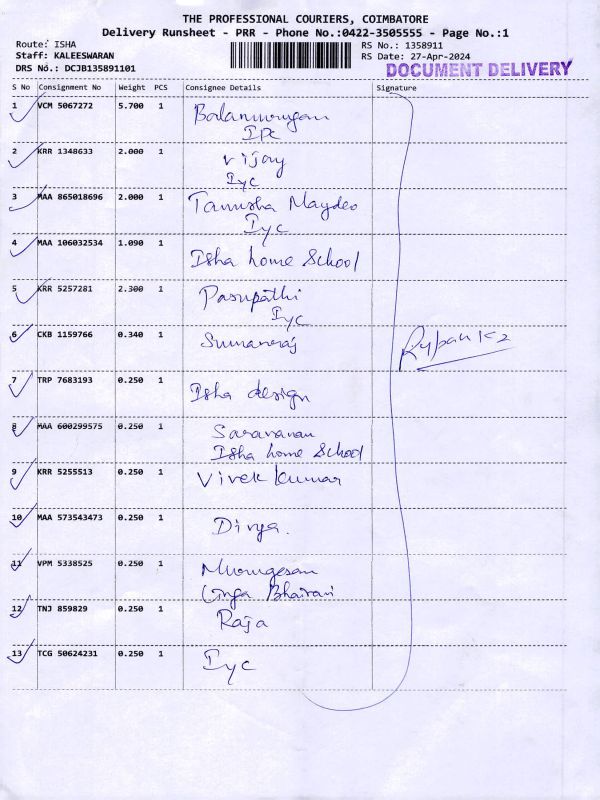 THE PROFESSIONAL COURIERS, COIMBATORE
Delivery Runsheet - PRR - Phone No.:0422-3505555 - Page No.:1
Route: ISHA
RS No.: 1358911
Staff: KALEESWARAN
RS Date: 27-Apr-2024
DRS No.: DCJB135891101
DOCUMENT DELIVERY
S No Consignment No Weight PCS Consignee Details Signature
1 VCM 5067272 5.700 1 Balamurugan
2 KRR 1348633 2.000 1 Vijay
Iyc
3 MAA 865018696 2.000 1 Tanusha Maydeo
Iyc
4 MAA 106032534 1.090 1 Isha home School
5 KRR 5257281 2.300 1 Pasupathi
Iyc
6 CKB 1159766 0.340 1 Sumaneraj
7 TRP 7683193 0.250 1 Isha design
8 MAA 600299575 0.250 1 Saravanan
Isha home School
9 KRR 5255513 0.250 1 Vivek Kumar
10 MAA 573543473 0.250 1 Divya.
11 VPM 5338525 0.250 1 Murugesan
Linga Bhairavi
12 TNJ 859829 0.250 1 Raja
13 TCG 50624231 0.250 1 Iyc